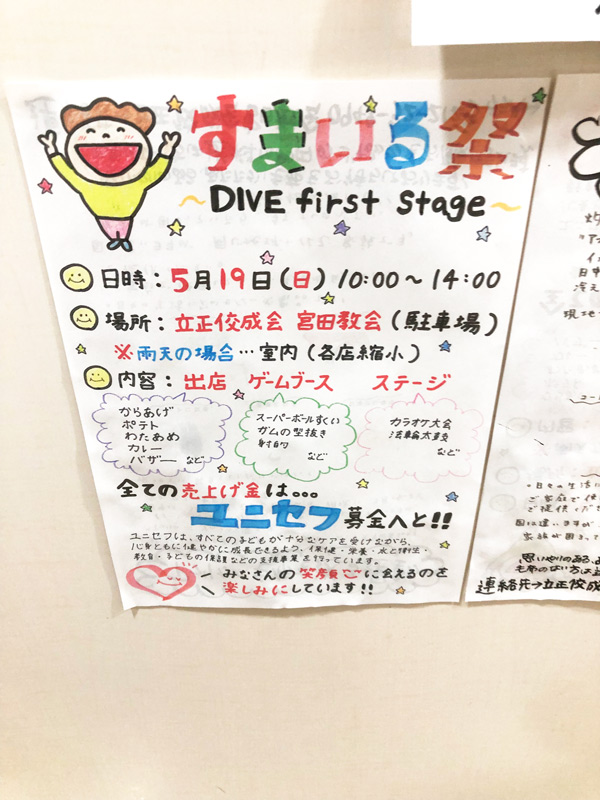 すまいる祭
〜DIVE first stage〜
日時：5月19日（日）10:00〜14:00
場所：立正佼成会 宮田教会（駐車場）
※雨天の場合…室内（各店縮小）
内容：出店 ゲームブース ステージ
からあげ
ポテト
わたあめ
カレー
バザー など
スーパーボールすくい
ガムの型抜き
射的
など
カラオケ大会
など
全ての売上げ金は。。。
ユニセフ募金へと!!
ユニセフは、すべての子どもが十分なケアを受けながら、
心身ともに健やかに成長できるよう、保健・栄養・水と衛生・
教育・子どもの保護などの支援事業を行っています。
みなさんの笑顔に会えるのを
楽しみにしています!!
イ
日中
冷え
現地
ご家庭で使
ご提供くだ
国は違いますが
家族が困って
思いやりのある
連絡先→立正佼成